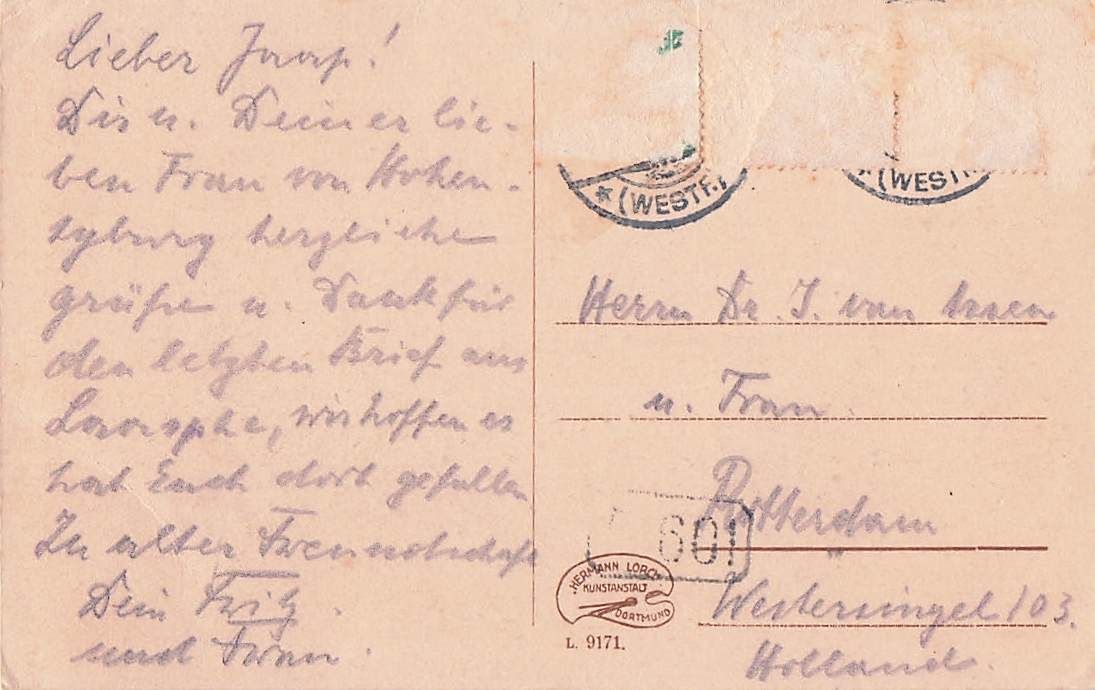 Lieber Jaap!
Dir u. Deiner lie-
ben Frau von Hohen-
syburg herzliche
Grüße u. Dank für
den letzten Brief aus
Laasphe, wir hoffen es
hat Euch dort gefallen
In alter Freundschaft
Dein Fritz.
und Frau.
* (WESTF.)
(WESTF.)
Herrn Dr. J. van Assen
u. Frau.
Rotterdam
601
Westersingel 103.
Holland.
HERMANN LORCH
KUNSTANSTALT
DORTMUND
L. 9171.